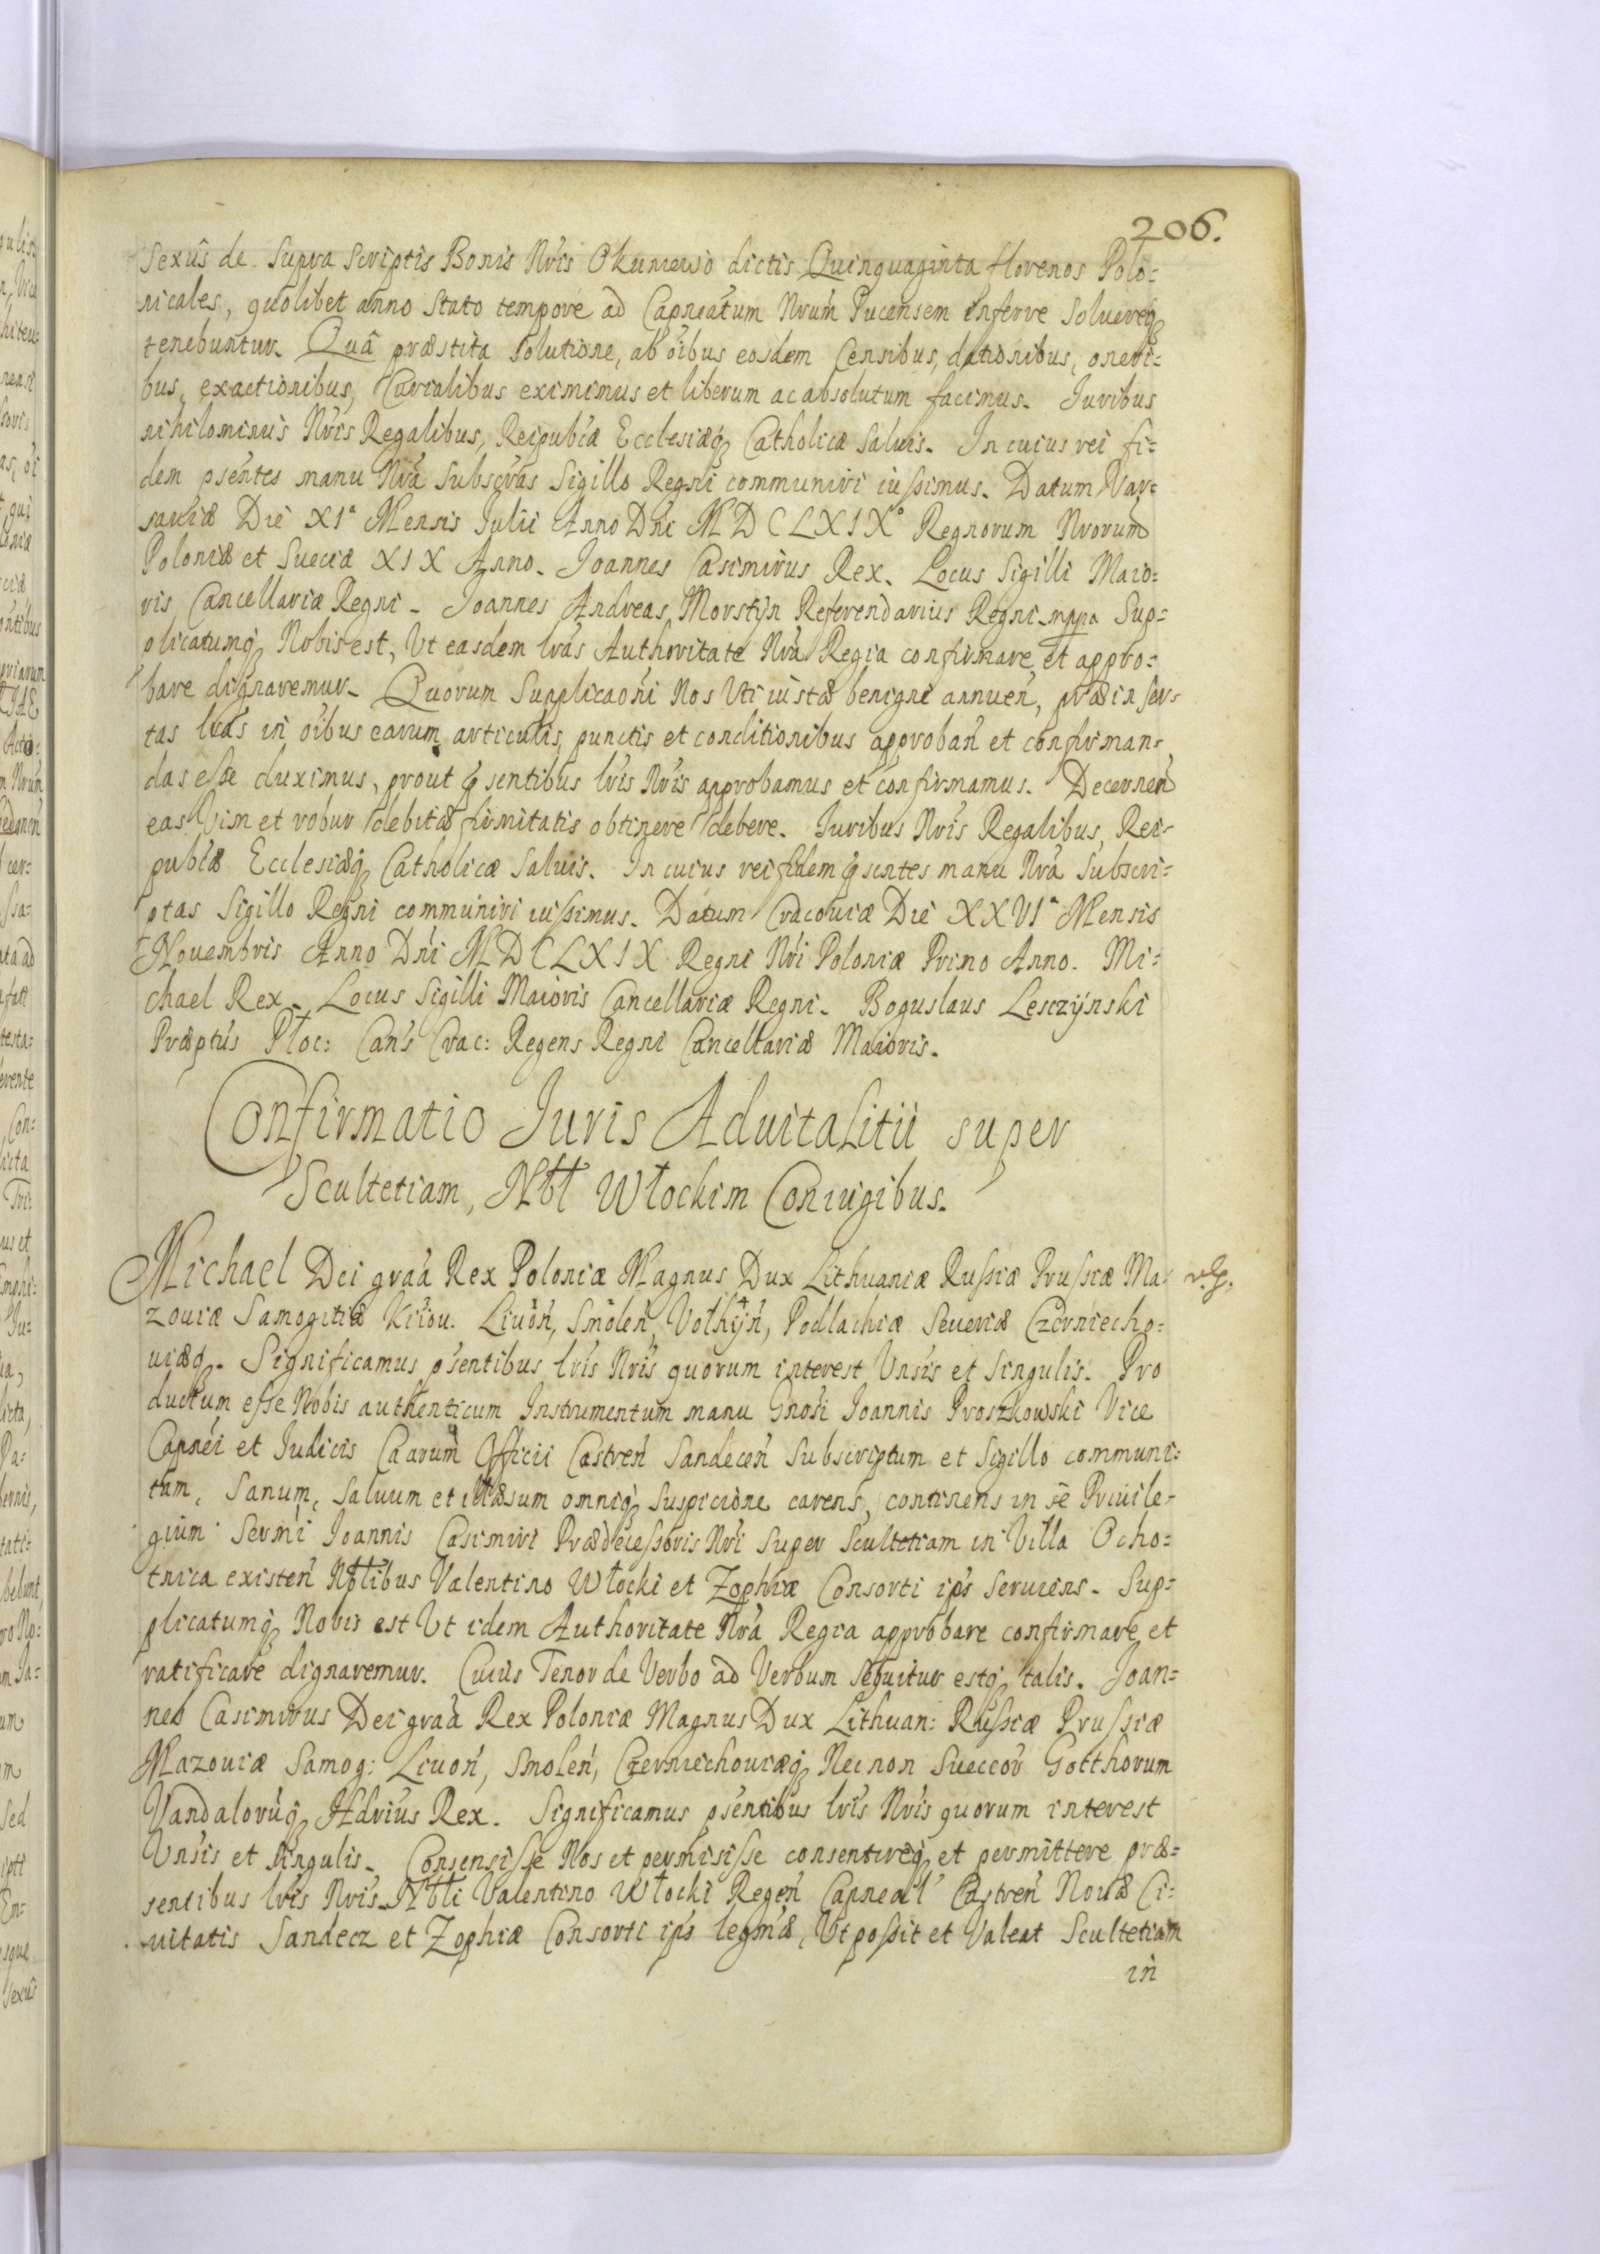 206.
Sexûs de Supra Scriptis Bonis Nris Okuniewo dictis Quinquaginta florenos Polo=
nicales, quolibet anno Stato tempore ad Capneatum Nrum Pucensem inferre Soluereq
tenebuntur. Quâ præstita Solutione, ab oibus eosdem Censibus, dationibus, oneri=
bus, exactionibus, Curialibus eximimus et liberum ac absolutum facimus. Juribus
nihilominus Nris Regalibus, Reipubcæ Ecclesiæq Catholicæ Saluis. In cuius rei fi=
dem psentes manu Nra Subscras Sigillo Regni communiri iussimus. Datum Var=
sauiæ Die XIa Mensis Julii Anno Dni MDCLXIXo Regnorum Nrorum
Poloniæ et Sueciæ XIX Anno. Joannes Casimirus Rex. Locus Sigilli Maio=
ris Cancellariæ Regni. Joannes Andreas Morstÿn Referendarius Regni mppa Sup=
plicatumq Nobis est, Ut easdem lras Authoritate Nra Regia confirmare et appro=
bare dignaremur. Quorum Supplicaoni Nos Uti iustæ benigne annuen, præinser=
tas lras in oibus earum articulis, punctis et conditionibus approban et confirman=
das esse duximus, prout psentibus lris Nris approbamus et confirmamus. Decernen
eas Vim et robur debitæ firmitatis obtinere debere. Juribus Nris Regalibus, Rei=
pubcæ Ecclesiæq Catholicæ Saluis. In cuius rei fidem psentes manu Nra Subscri=
ptas Sigillo Regni communiri iussimus. Datum Cracouiæ Die XXVIa Mensis
Nouembris Anno Dni MDCLXIX Regni Nri Poloniæ Primo Anno. Mi=
chael Rex. Locus Sigilli Maioris Cancellariæ Regni. Boguslaus Lesczÿnski
Præptus Płoc: Cans Crac: Regens Regni Cancellariæ Maioris.
Confirmatio Juris Aduitalitii super
Scultetiam, Nbtt Włockim Coniugibus.
Michael Dei graa Rex Poloniæ Magnus Dux Lithuaniæ Russiæ Prussiæ Ma=
zouiæ Samogitiæ Kiiou. Liuon, Smolen, Volhÿn, Podlachiæ Seueriæ Czerniecho=
uiæq. Significamus psentibus lris Nris quorum interest Unsis et Singulis. Pro
ductum esse Nobis authenticum Instrumentum manu Gnosi Joannis Proszkowski Vice
Capnei et Judicis Caarum Officii Castren Sandecen Subscriptum et Sigillo communi=
tum, Sanum, Saluum et illæsum omniq Suspicione carens, continens in se Priuile=
gium Sermi Joannis Casimiri Prædecessoris Nri Super Scultetiam in Villa Ocho=
tnica existen Nbtlibus Valentino Włocki et Zophiæ Consorti ips Seruiens. Sup=
plicatumq Nobis est Ut idem Authoritate Nra Regia approbare confirmare et
ratificare dignaremur. Cuius Tenor de Verbo ad Verbum Sequitur estq talis. Joan=
nes Casimirus Dei graa Rex Poloniæ Magnus Dux Lithuan: Russiæ Prussiæ
Mazouiæ Samog: Liuon, Smolen, Czerniechouiæq Necnon Sueccor Gotthorum
Vandaloruq Hdrius Rex. Significamus psentibus lris Nris quorum interest
Unsis et Singulis. Consensisse Nos et permisisse consentireq et permittere præ=
sentibus lris Nris Nbtli Valentino Włocki Regen Capneal Castren Nouæ Ci=
uitatis Sandecz et Zophiæ Consorti ips legmæ, Ut possit et Valeat Scultetiam
in